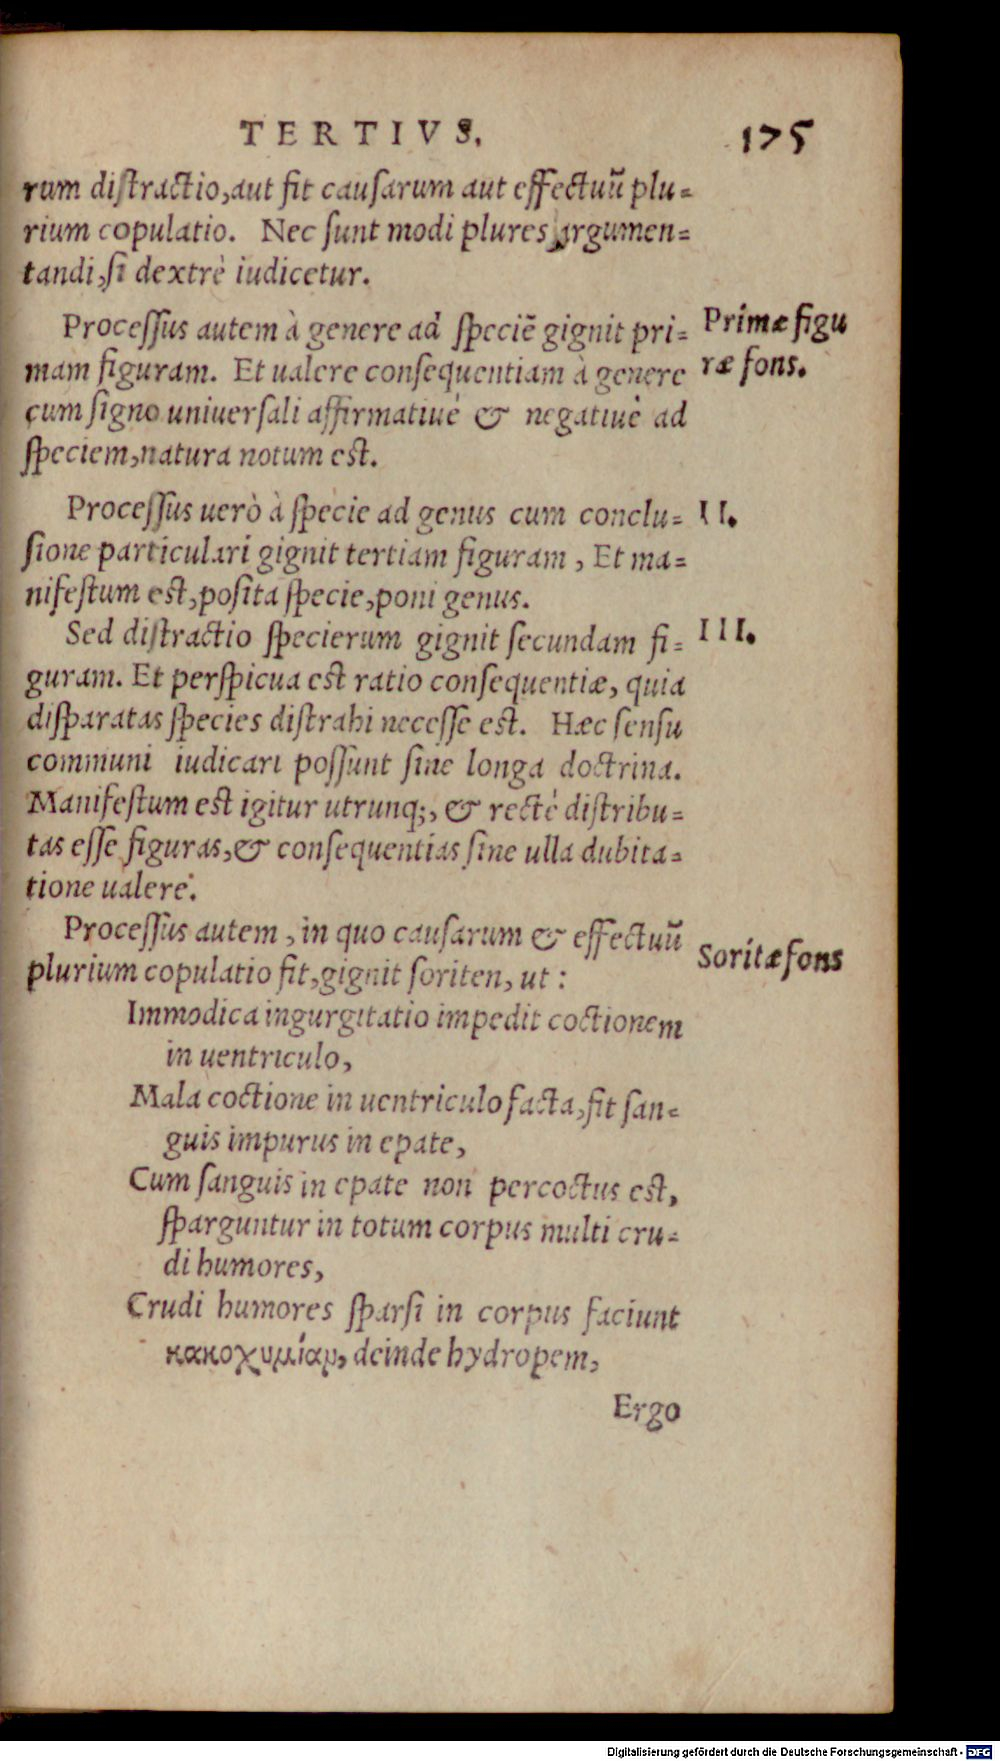 TERTIVS. 175
rum distractio, aut fit causarum aut effectuũ plu-
rium copulatio. Nec sunt modi plures argumen-
tandi, si dextrè iudicetur.
Processus autem à genere ad speciẽ gignit pri-
mam figuram. Et ualere consequentiam à genere
cum signo uniuersali affirmatiuè & negatiuè ad
speciem, natura notum est.
Primæ figu
ræ fons.
Processus uerò à specie ad genus cum conclu-
sione particulari gignit tertiam figuram, Et ma-
nifestum est, posita specie, poni genus.
II.
Sed distractio specierum gignit secundam fi-
guram. Et perspicua est ratio consequentiæ, quia
disparatas species distrahi necesse est. Hæc sensu
communi iudicari possunt sine longa doctrina.
Manifestum est igitur utrunq;, & rectè distribu-
tas esse figuras, & consequentias sine ulla dubita-
tione ualere.
III.
Processus autem, in quo causarum & effectuũ
plurium copulatio fit, gignit soriten, ut:
Soritæ fons
Immodica ingurgitatio impedit coctionem
in uentriculo,
Mala coctione in uentriculo facta, fit san-
guis impurus in epate,
Cum sanguis in epate non percoctus est,
sparguntur in totum corpus multi cru-
di humores,
Crudi humores sparsi in corpus faciunt
κακοχυμίαν, deinde hydropem,
Ergo
Digitalisierung gefördert durch die Deutsche Forschungsgemeinschaft - DFG